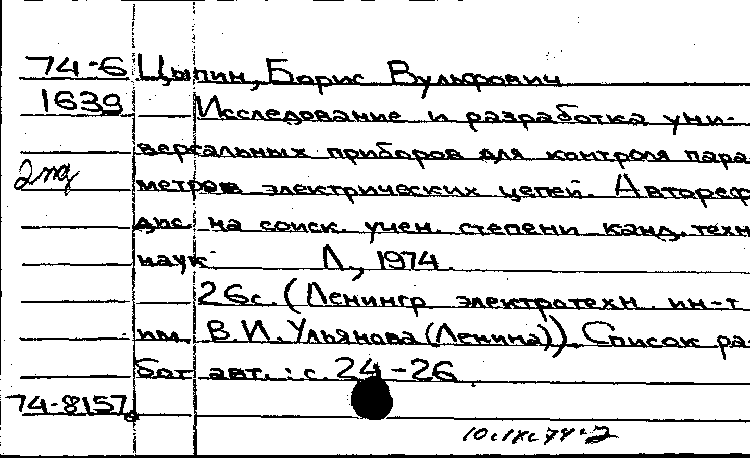 74-6 Цыпин, Борис Вульфович
1639 Исследование и разработка уни-
версальных приборов для контроля пара
метров электрических цепей. Автореф
дис. на соиск. учен. степени канд. техн
наук. Л., 1974.
26с. (Ленингр. электротехн. ин-т
им. В.И. Ульянова (Ленина)). Список ра
бот авт.: с. 24-26.
74-8157